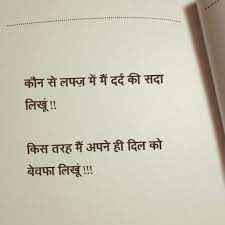 कौन से लफ्ज़ में मैं दर्द की सदा
लिखूं !!
किस तरह मैं अपने ही दिल को
बेवफा लिखूं !!!